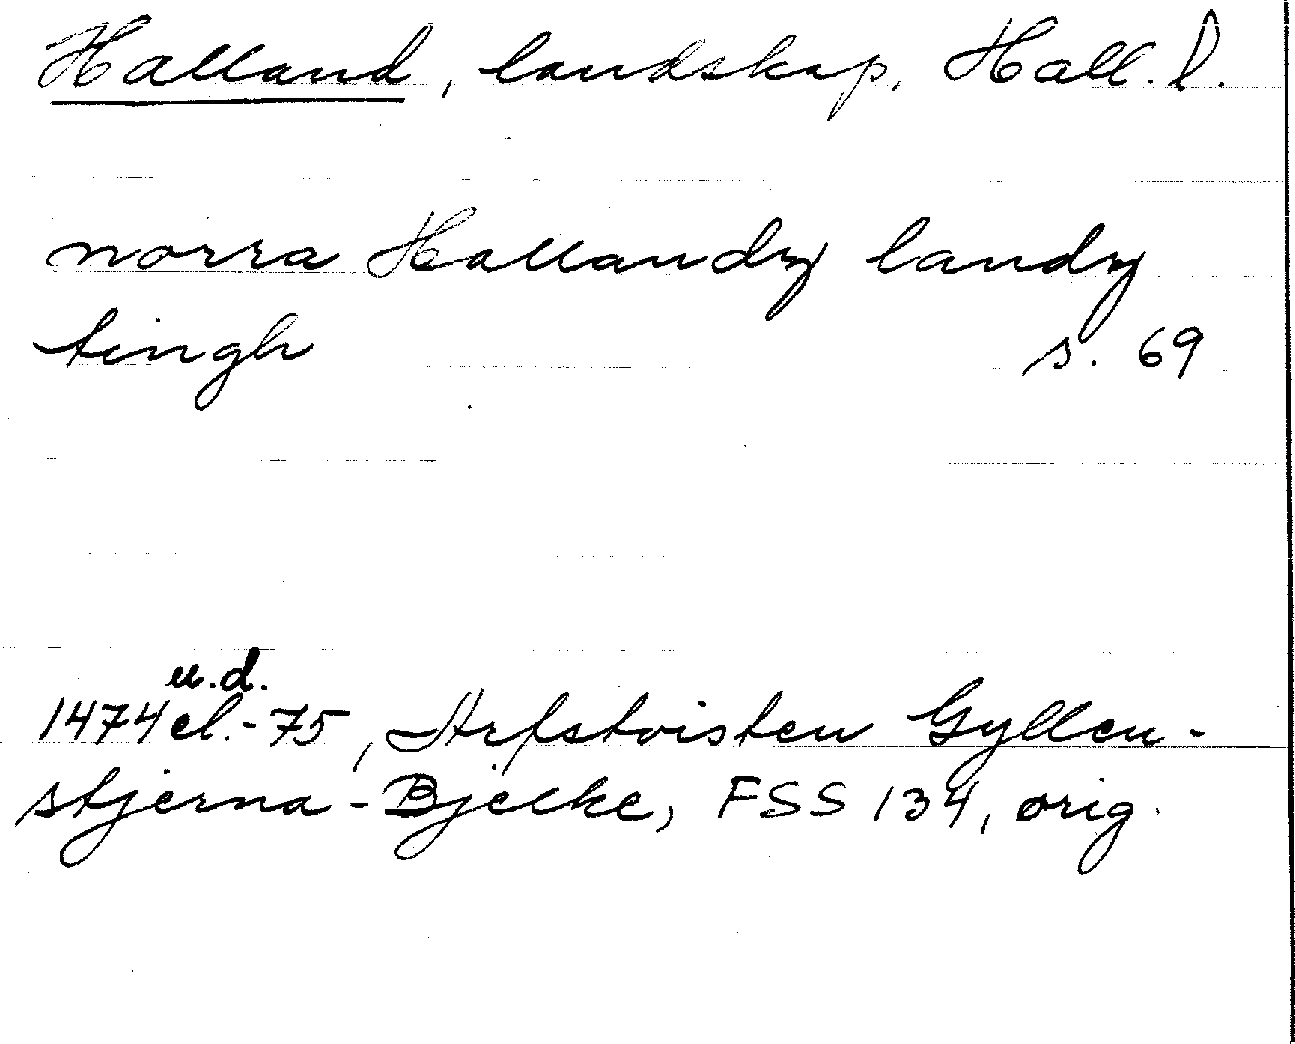 Halland, landskap, Hall. l.
norra Hallandz landz
tingh s. 69
u.d.
1474 el.-75, Arfstvisten Gyllen-
stjerna-Bjelke, FSS 134, orig.